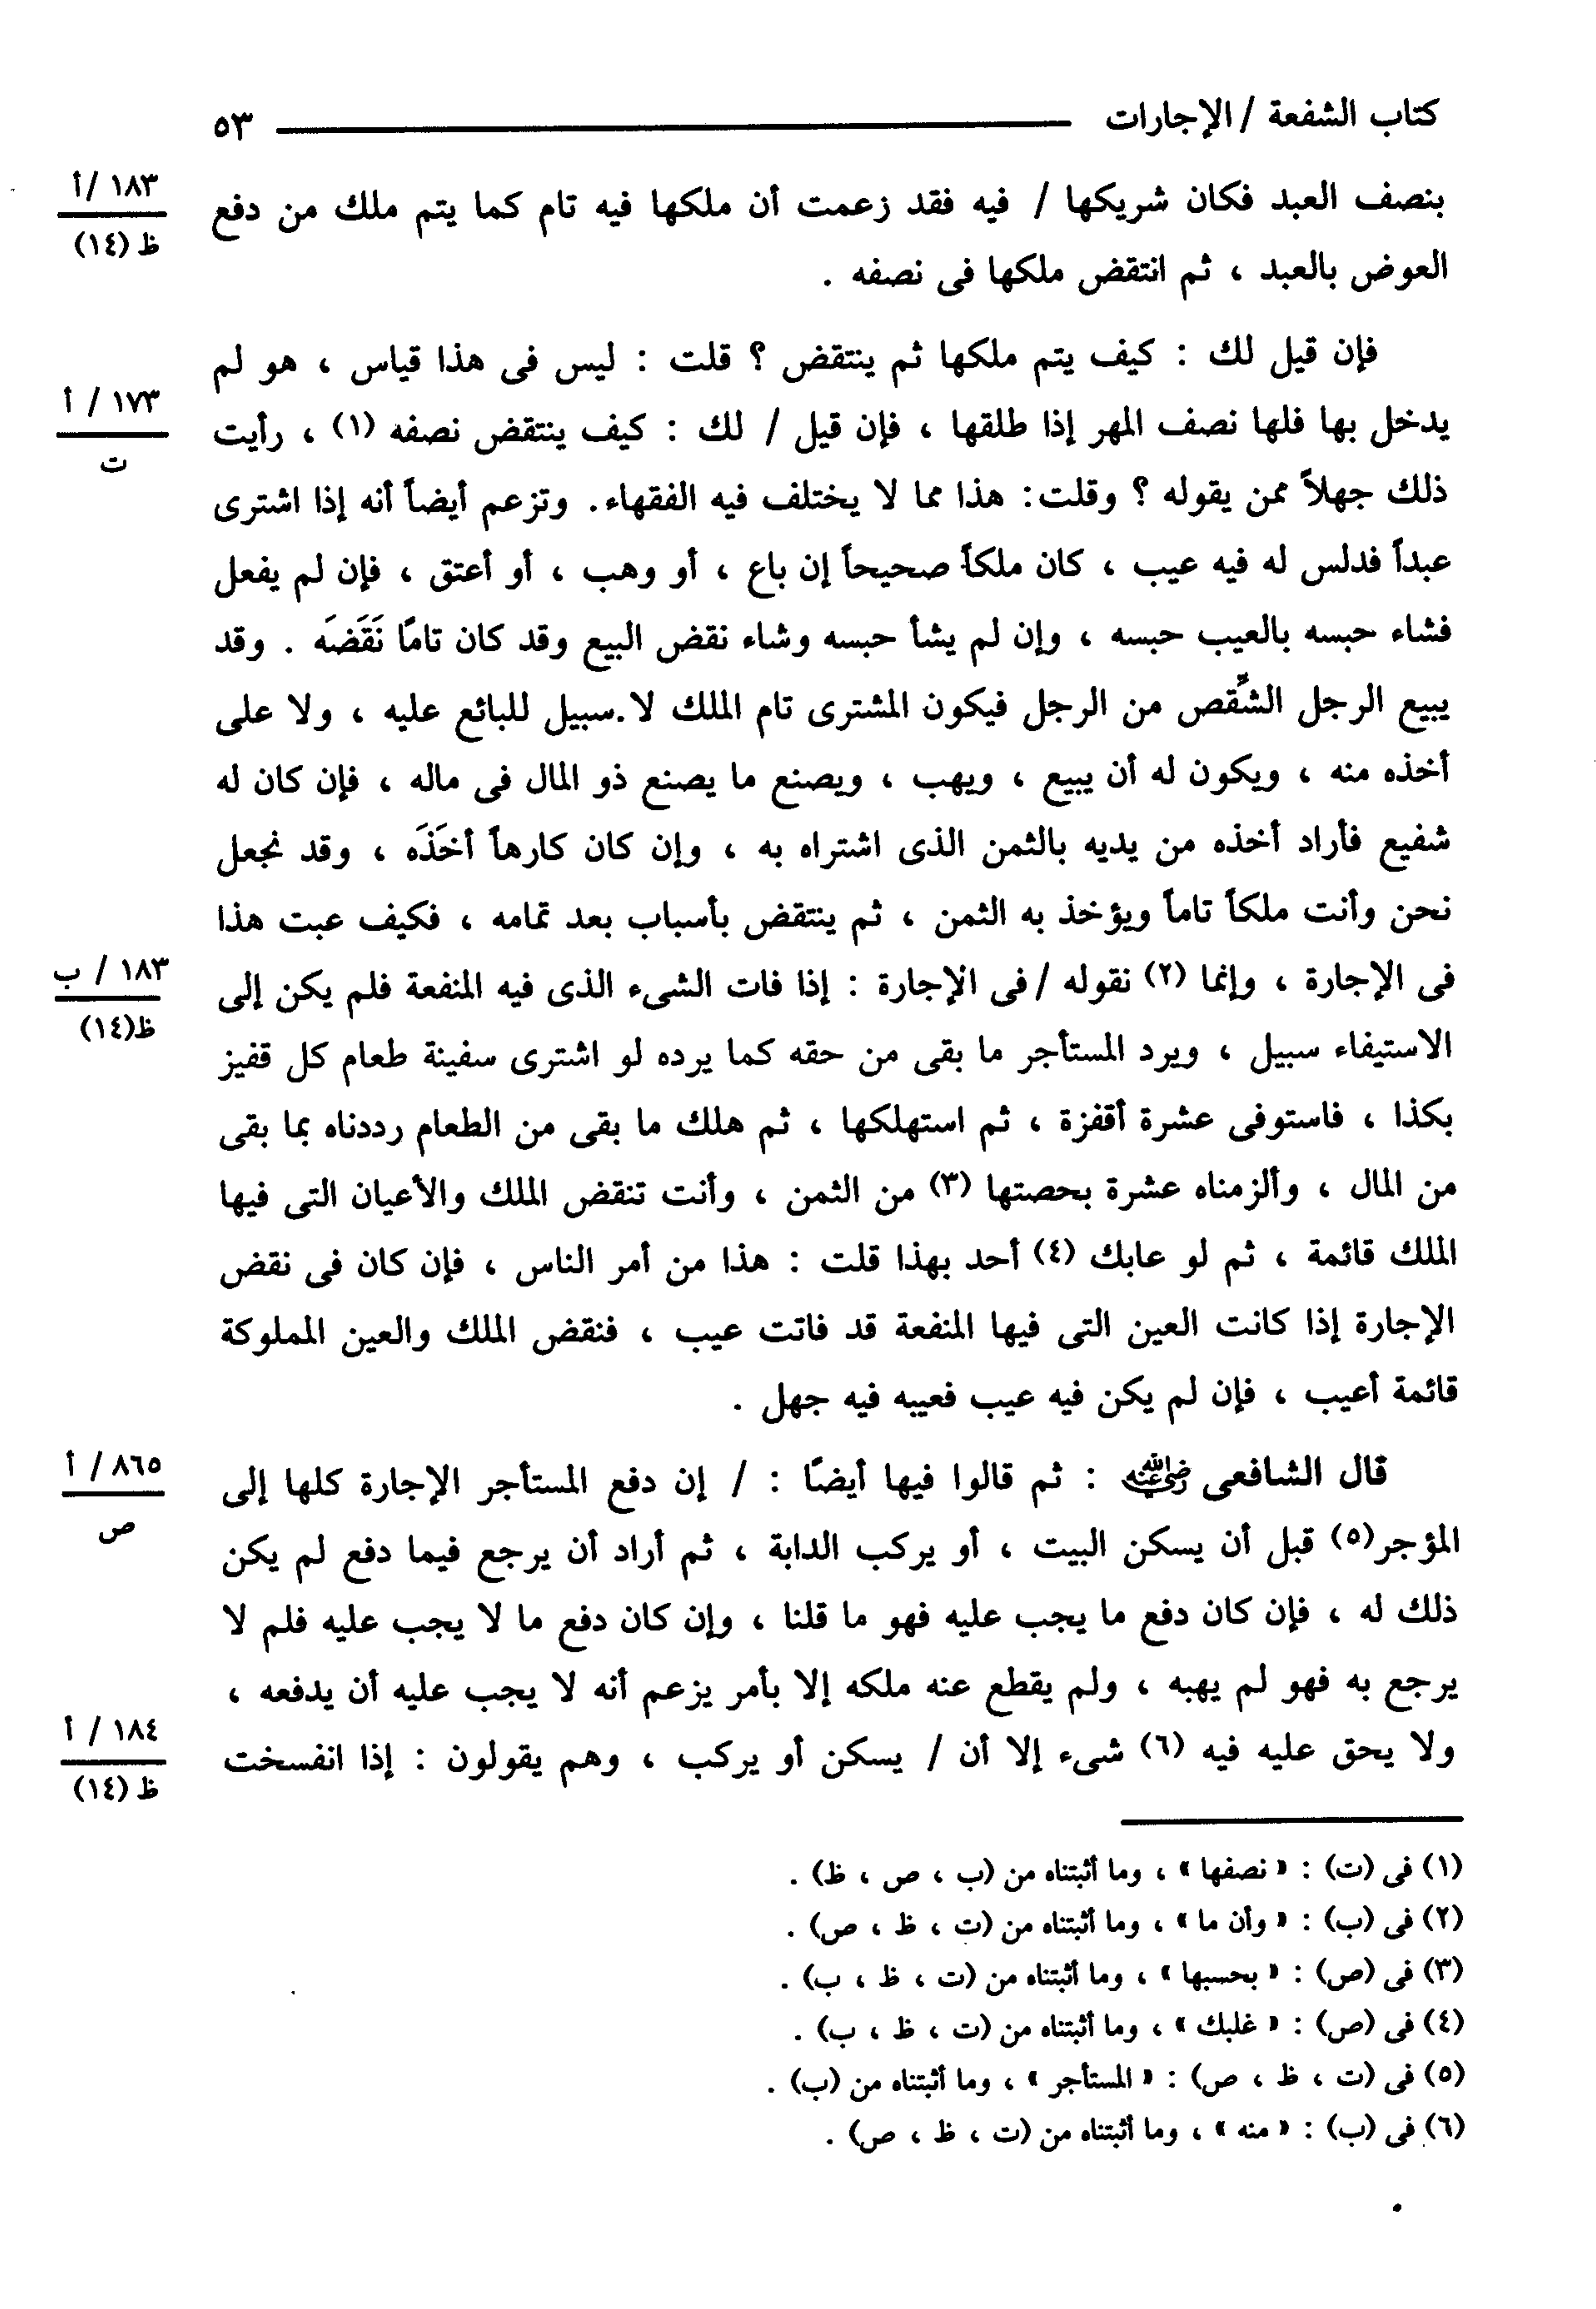 كتاب الشفعة / الإجارات ٥٣
١٨٣ /أ
ظ (١٤)
بنصف العبد فكان شريكها / فيه فقد زعمت أن ملكها فيه تام كما يتم ملك من دفع
العوض بالعبد ، ثم انتقض ملكها فى نصفه .
فإن قيل لك : كيف يتم ملكها ثم ينتقض ؟ قلت : ليس فى هذا قياس ، هو لم
١٧٣ / أ
ت
يدخل بها فلها نصف المهر إذا طلقها ، فإن قيل / لك : كيف ينتقض نصفه (١) ، رأيت
ذلك جهلاً ممن يقوله ؟ وقلت: هذا مما لا يختلف فيه الفقهاء. وتزعم أيضاً أنه إذا اشترى
عبداً فدلس له فيه عيب ، كان ملكاً صحيحاً إن باع ، أو وهب ، أو أعتق ، فإن لم يفعل
فشاء حبسه بالعيب حبسه ، وإن لم يشأ حبسه وشاء نقض البيع وقد كان تامًا نَقَضَه . وقد
يبيع الرجل الشِّقص من الرجل فيكون المشترى تام الملك لا.سبيل للبائع عليه ، ولا على
أخذه منه ، ويكون له أن يبيع ، ويهب ، ويصنع ما يصنع ذو المال فى ماله ، فإن كان له
شفيع فأراد أخذه من يديه بالثمن الذى اشتراه به ، وإن كان كارهاً أخَذَه ، وقد نجعل
نحن وأنت ملكاً تاماً ويؤخذ به الثمن ، ثم ينتقض بأسباب بعد تمامه ، فكيف عبت هذا
١٨٣ / ب
ظ(١٤)
فى الإجارة ، وإنما (٢) نقوله /فى الإجارة : إذا فات الشىء الذى فيه المنفعة فلم يكن إلى
الاستيفاء سبيل ، ويرد المستأجر ما بقى من حقه كما يرده لو اشترى سفينة طعام كل قفيز
بكذا ، فاستوفى عشرة أقفزة ، ثم استهلكها ، ثم هلك ما بقى من الطعام رددناه بما بقى
من المال ، وألزمناه عشرة بحصتها (٣) من الثمن ، وأنت تنقض الملك والأعيان التى فيها
الملك قائمة ، ثم لو عابك (٤) أحد بهذا قلت : هذا من أمر الناس ، فإن كان فى نقض
الإجارة إذا كانت العين التى فيها المنفعة قد فاتت عيب ، فنقض الملك والعين المملوكة
قائمة أعيب ، فإن لم يكن فيه عيب فعيبه فيه جهل .
٨٦٥ / أ
ص
قال الشافعى رضي الله عنه : ثم قالوا فيها أيضًا : / إن دفع المستأجر الإجارة كلها إلى
المؤجر(٥) قبل أن يسكن البيت ، أو يركب الدابة ، ثم أراد أن يرجع فيما دفع لم يكن
ذلك له ، فإن كان دفع ما يجب عليه فهو ما قلنا ، وإن كان دفع ما لا يجب عليه فلم لا
يرجع به فهو لم يهبه ، ولم يقطع عنه ملكه إلا بأمر يزعم أنه لا يجب عليه أن يدفعه ،
١٨٤ / أ
ظ (١٤)
ولا يحق عليه فيه (٦) شىء إلا أن / يسكن أو يركب ، وهم يقولون : إذا انفسخت
(١) فى (ت) : « نصفها » ، وما أثبتناه من (ب ، ص ، ظ) .
(٢) فى (ب) : « وأن ما » ، وما أثبتناه من (ت ، ظ ، ص) .
(٣) فى (ص) : « بحسبها » ، وما أثبتناه من (ت ، ظ ، ب) .
(٤) فى (ص) : « غلبك » ، وما أثبتناه من (ت ، ظ ، ب) .
(٥) فى (ت ، ظ ، ص) : « المستأجر » ، وما أثبتناه من (ب) .
(٦) فى (ب) : « منه » ، وما أثبتناه من (ت ، ظ ، ص) .